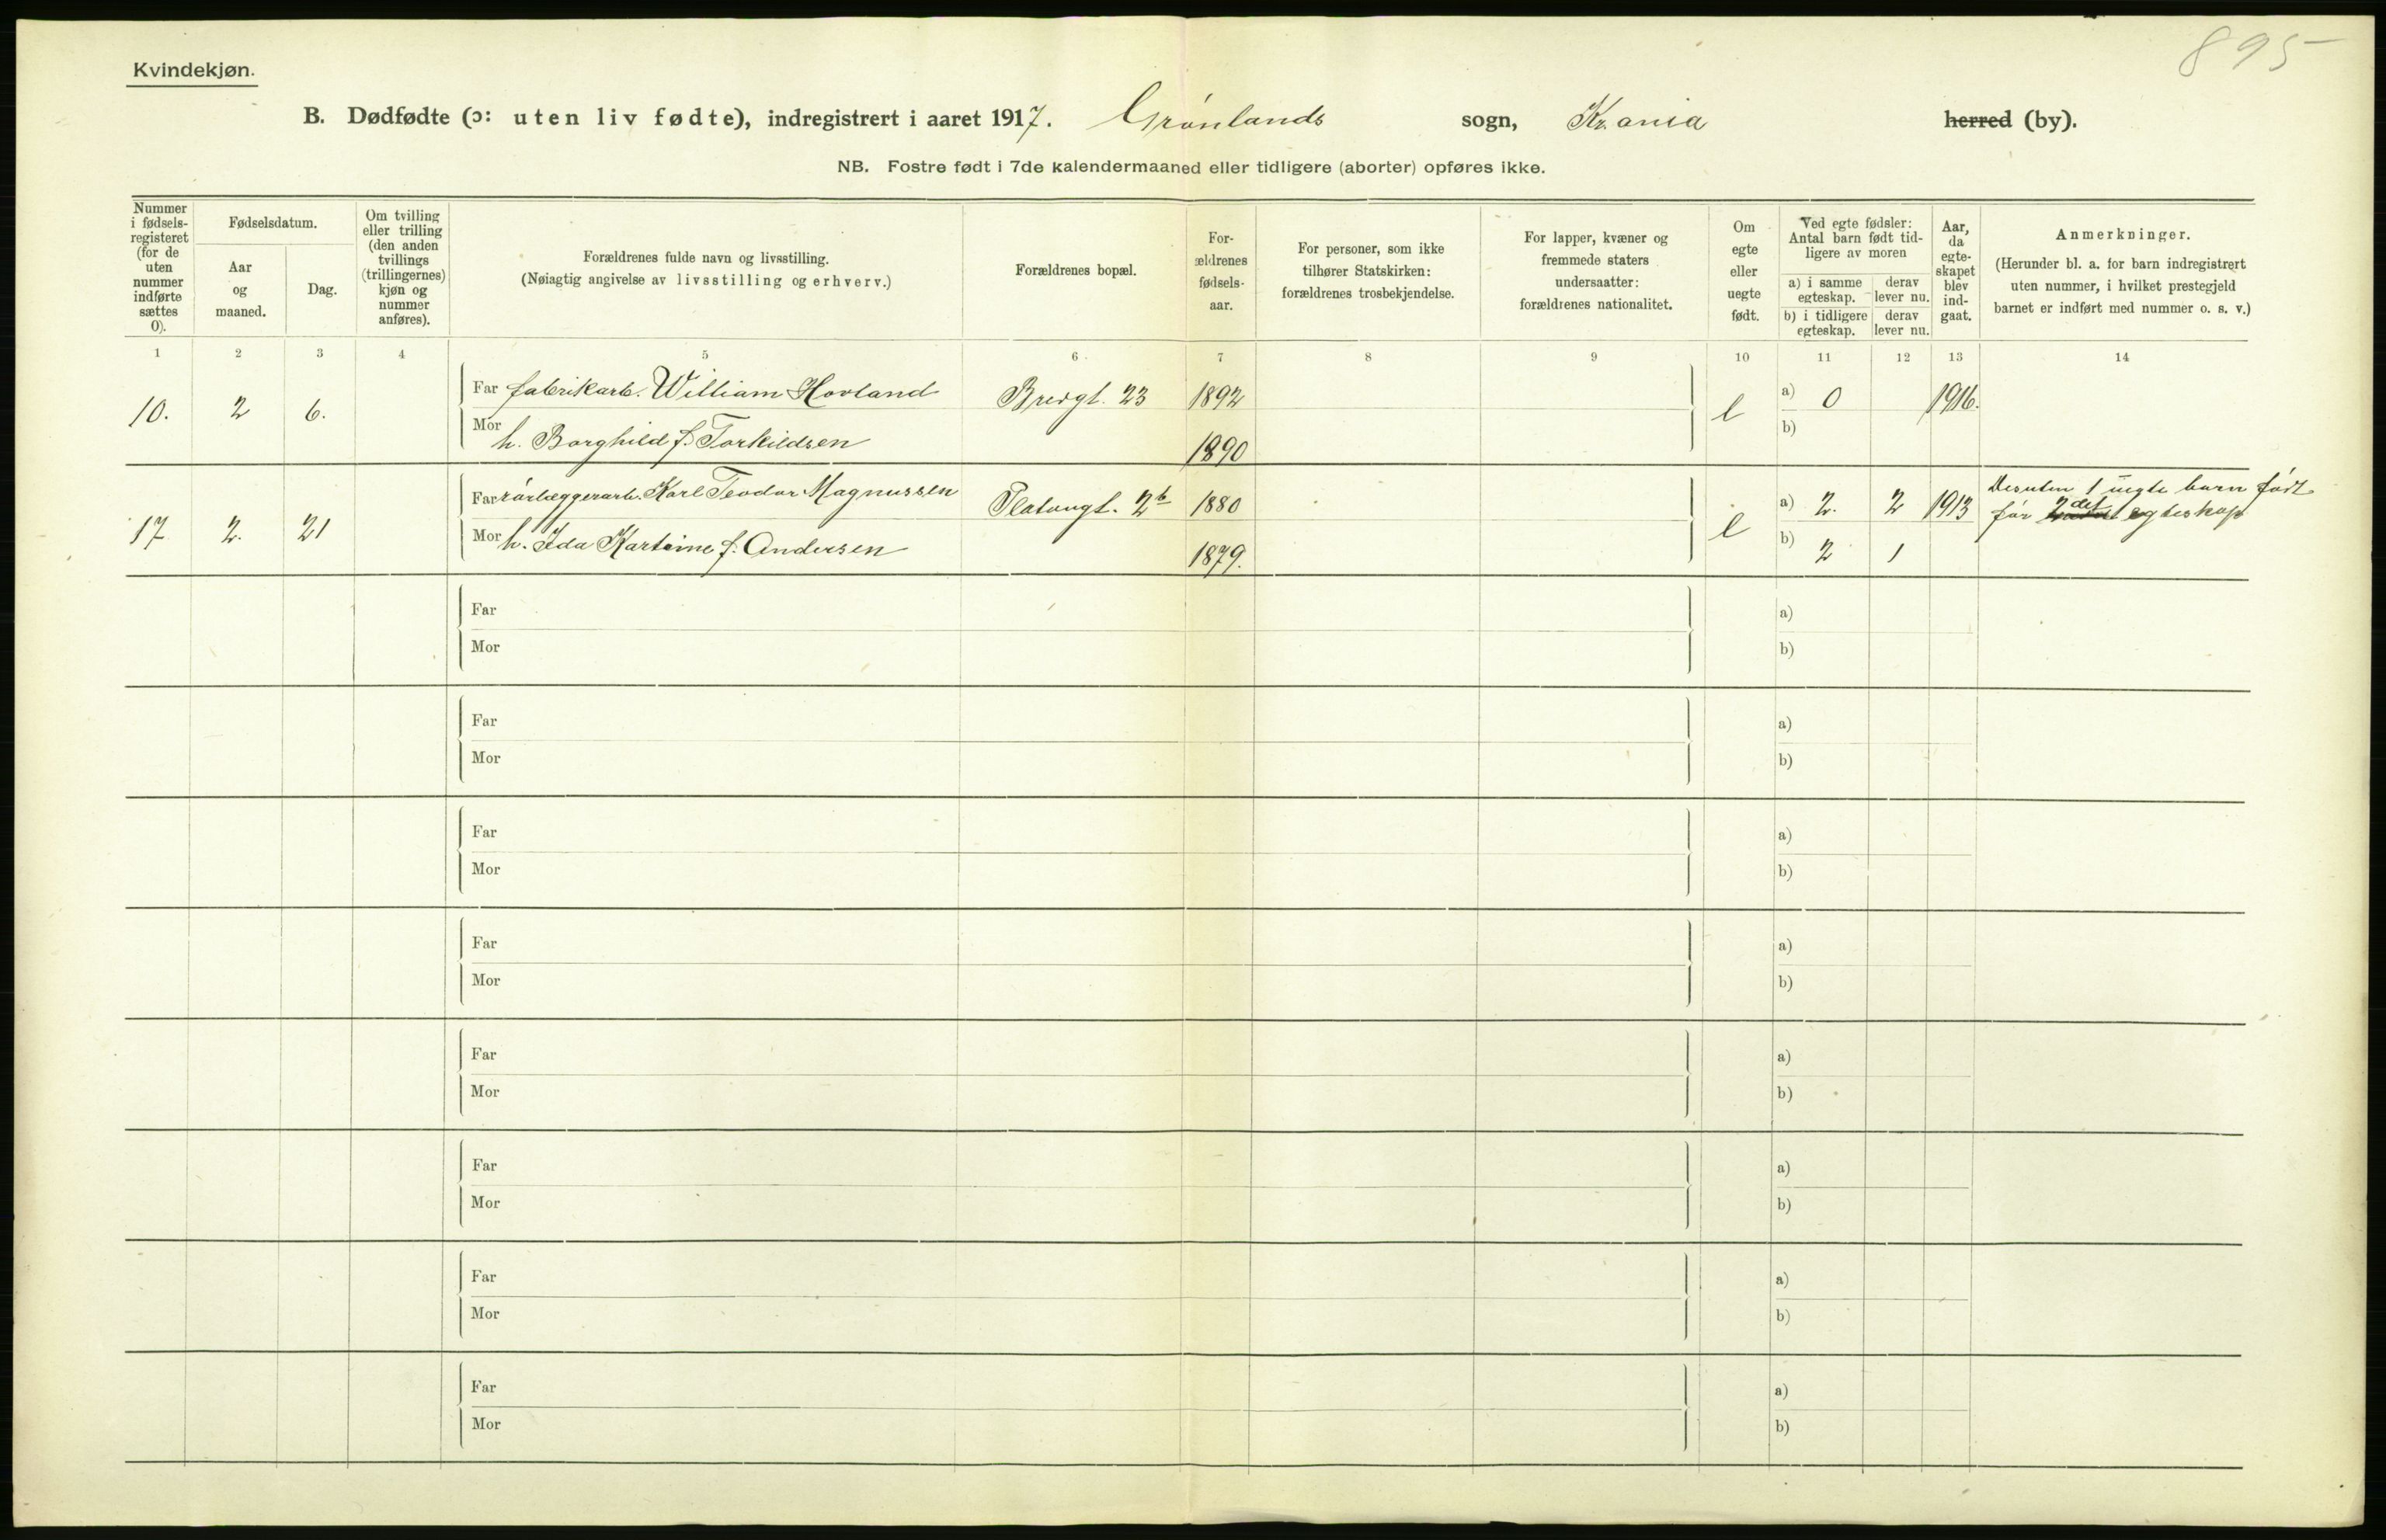 895
Kvindekjøn.
B. Dødfødte (ɔ: uten liv fødte), indregistrert i aaret 1917. Grønlands sogn, Kr.ania herred (by).
NB. Fostre født i 7de kalendermaaned eller tidligere (aborter) opføres ikke.
Nummer i fødsels-registeret (for de uten nummer indførte sættes 0).
Fødselsdatum.
Aar og maaned.
Dag.
Om tvilling eller trilling (den anden tvillings (trillingernes) kjøn og nummer anføres).
Forældrenes fulde navn og livsstilling.
(Nøiagtig angivelse av livsstilling og erhverv.)
Forældrenes bopæl.
For-ældrenes fødsels-aar.
For personer, som ikke tilhører Statskirken: forældrenes trosbekjendelse.
For lapper, kvæner og fremmede staters undersaatter: forældrenes nationalitet.
Om egte eller uegte født.
Ved egte fødsler: Antal barn født tid-ligere av moren
a) i samme egteskap.
derav lever nu.
b) i tidligere egteskap.
derav lever nu.
Aar, da egte-skapet blev ind-gaat.
Anmerkninger.
(Herunder bl. a. for barn indregistrert uten nummer, i hvilket prestegjeld barnet er indført med nummer o. s. v.)
1 2 3 4 5 6 7 8 9 10 11 12 13 14
10. 2 6. Far fabrikarb. William Hovland Bredgt. 23 1892 e a) 0 1916.
Mor h. Borghild f. Torkildsen 1890 b)
17. 2. 21 Far rørlæggerarb. Karl Teodor Magnussen Platousgt. 2b 1880 e a) 2. 2 1913 Desuten 1 uegte barn født
før 2det egteskap
Mor h. Ida Kartrine f. Andersen 1879. b) 2 1
Far a)
Mor b)
Far a)
Mor b)
Far a)
Mor b)
Far a)
Mor b)
Far a)
Mor b)
Far a)
Mor b)
Far a)
Mor b)
Far a)
Mor b)